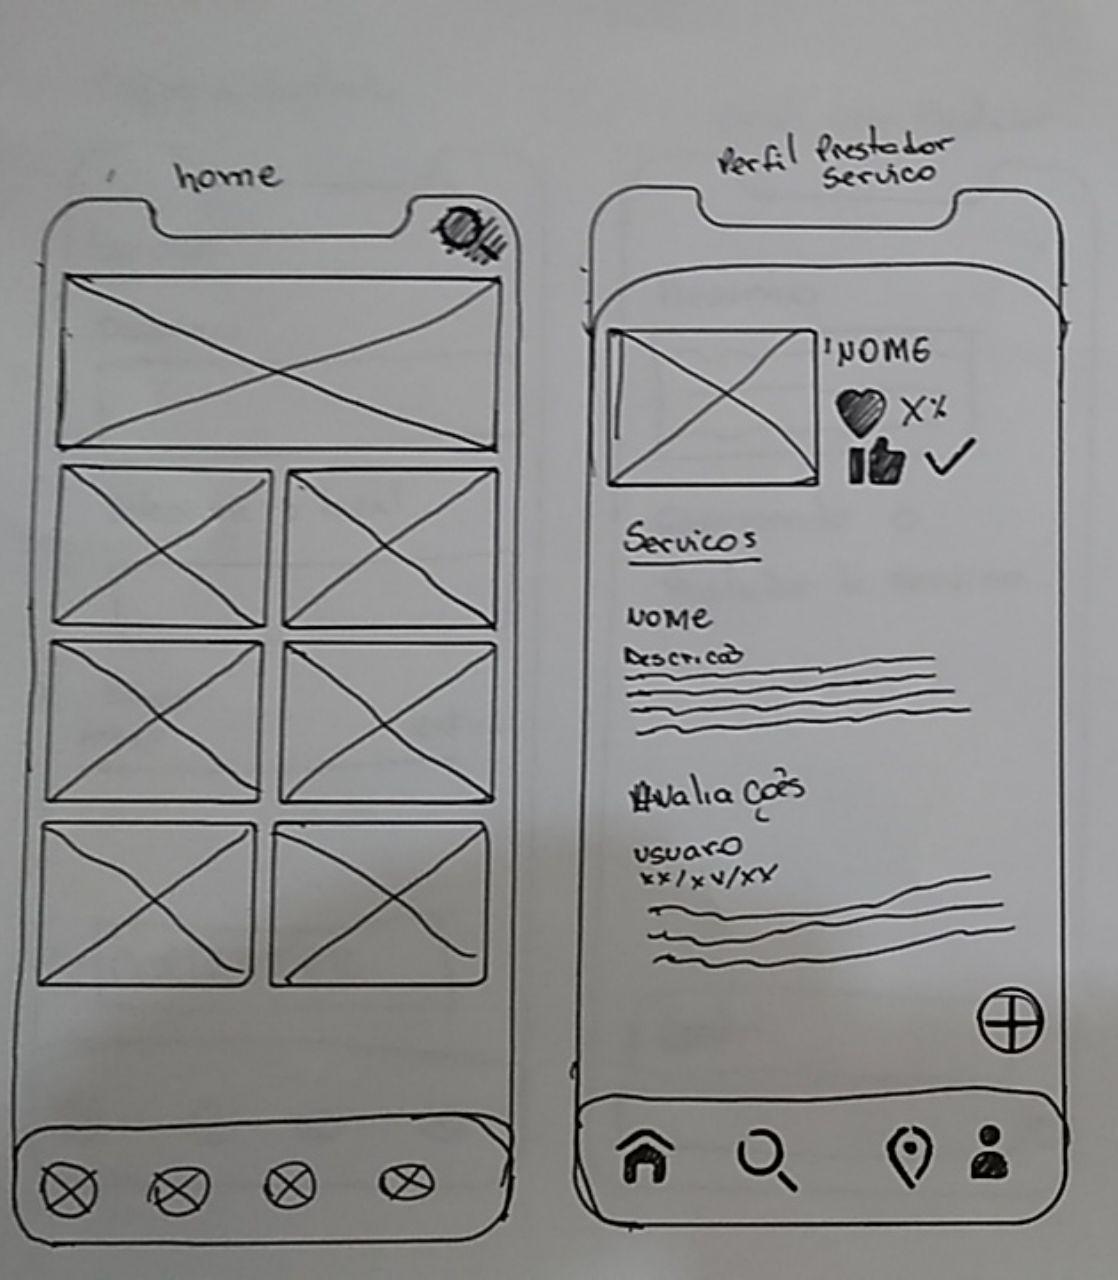 home
Perfil Prestador
Servico
NOME
X%
Servicos
NOME
Descricaõ
Avaliações
usuaro
xx/xv/xx